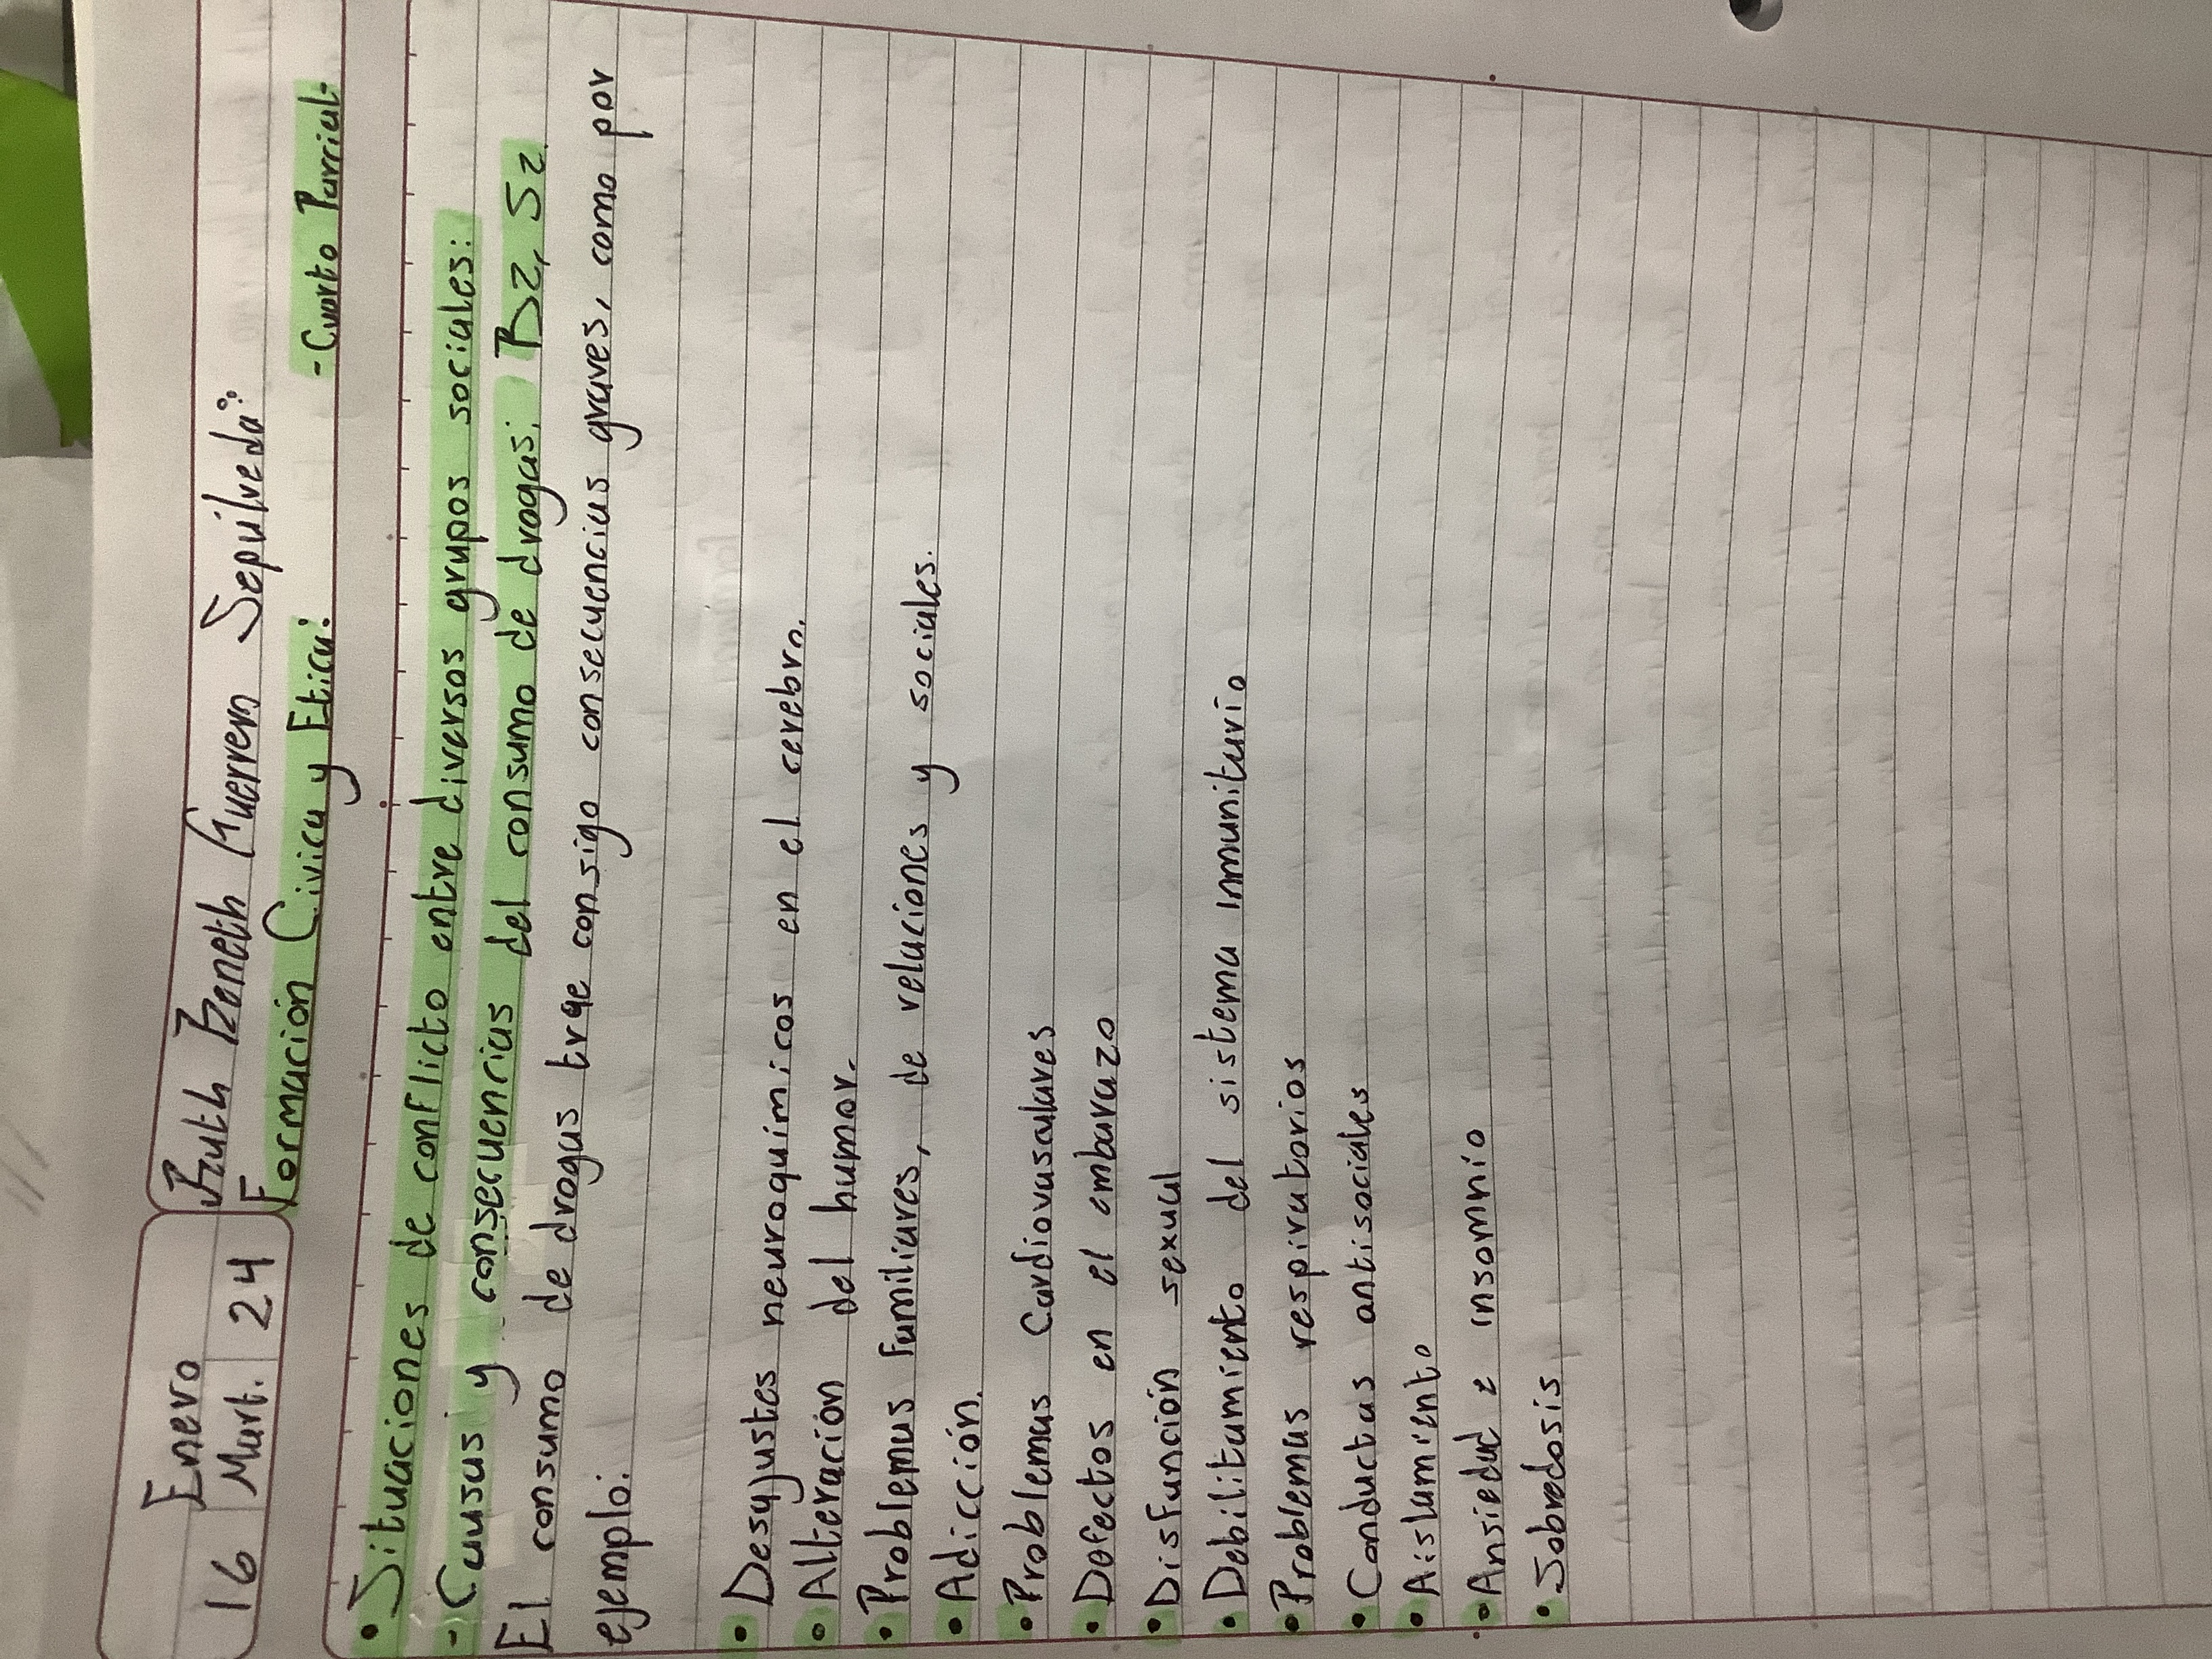 Enero
16 Mart. 24
Ruth Foneth Guerrero Sepúlveda:
Formación Civica y Etica: - Cuarto Parcial-
• Situaciones de conflicto entre diversos grupos sociales:
- Causas y consecuencias del consumo de drogas: B2, S2
El consumo de drogas trae consigo consecuencias graves, como por
ejemplo:
• Desajustes neuroquímicos en el cerebro.
• Alteración del humor.
• Problemas familiares, de relaciones y sociales.
• Adicción.
• Problemas Cardiovasculares
• Defectos en el embarazo
• Disfunción sexual
• Debilitamiento del sistema inmunitario
• Problemas respiratorios
• Conductas antisociales
• Aislamiento
• Ansiedad e insomnio
• Sobredosis